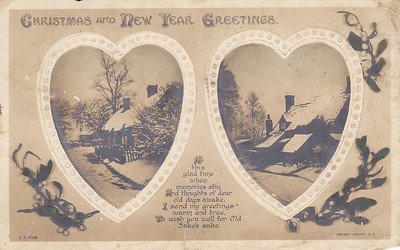 CHRISTMAS AND NEW YEAR GREETINGS.
At
this
glad time
when
memories stir,
And thoughts of dear
old days awake,
I send my greetings
warm and true,
To wish you well for Old
Sake's sake.